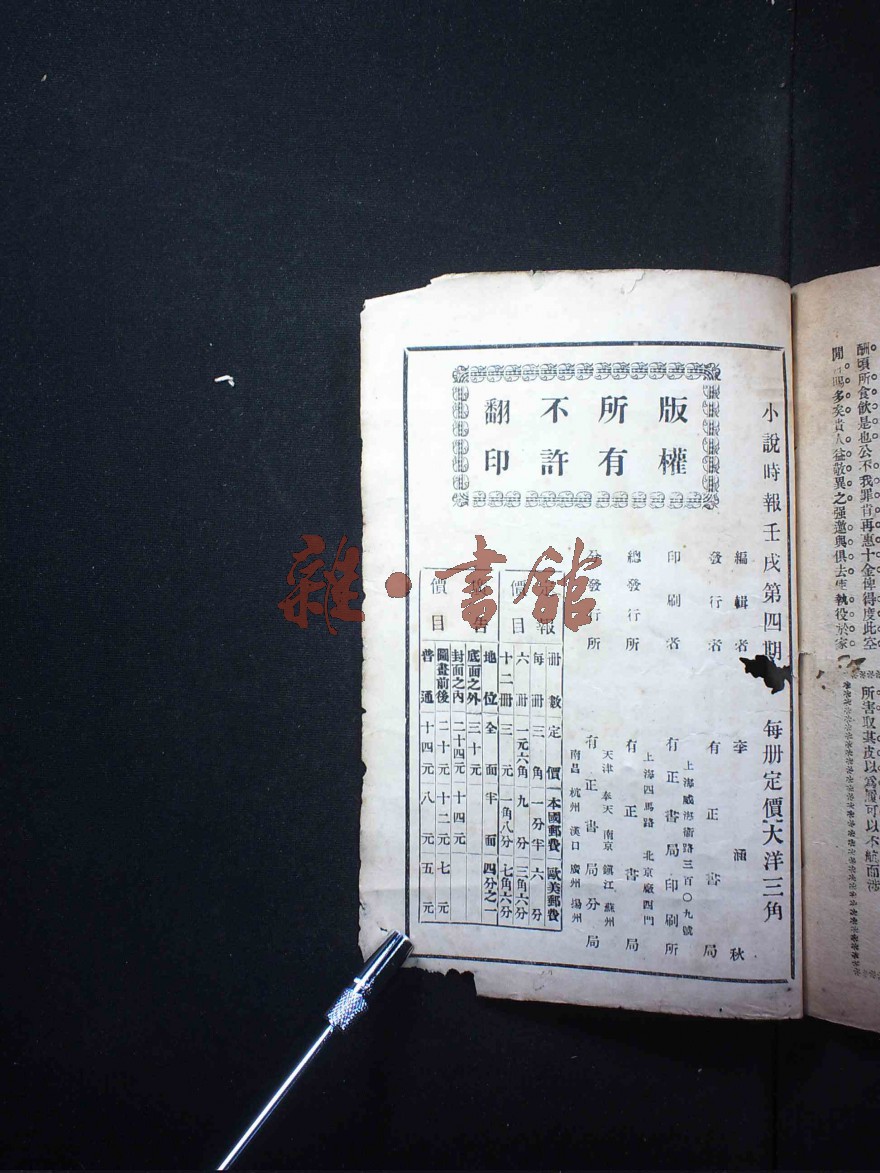 酬頃所食飲是也公不我罪肯再惠十金使得度此空
多矣貴人益敬異之强邀與俱去生執役於家
所害取其皮以為履可以不航而涉
小說時報壬戌第四期 每册定價大洋三角
編輯者 李涵秋
發行者 有正書局
上海威海衞路三百〇九號
印刷者 有正書局印刷所
上海四馬路 北京廠西門
總發行所 有正書局
天津 奉天 南京 鎮江 蘇州
分發行所 有正書局分局
南昌 杭州 漢口 廣州 揚州
版權
所有
不許
翻印
報
價目
册數 定價 本國郵費 歐美郵費
每册 三角 一分半 六分
六册 一元六角 九分 三角六分
十二册 三元 一角八分 七角六分
廣告
價目
地位 全面 半面 四分之一
底面之外 三十元
封面之內 二十四元 十四元
圖畫前後 二十元 十二元 七元
普通 十四元 八元 五元
雜·書館